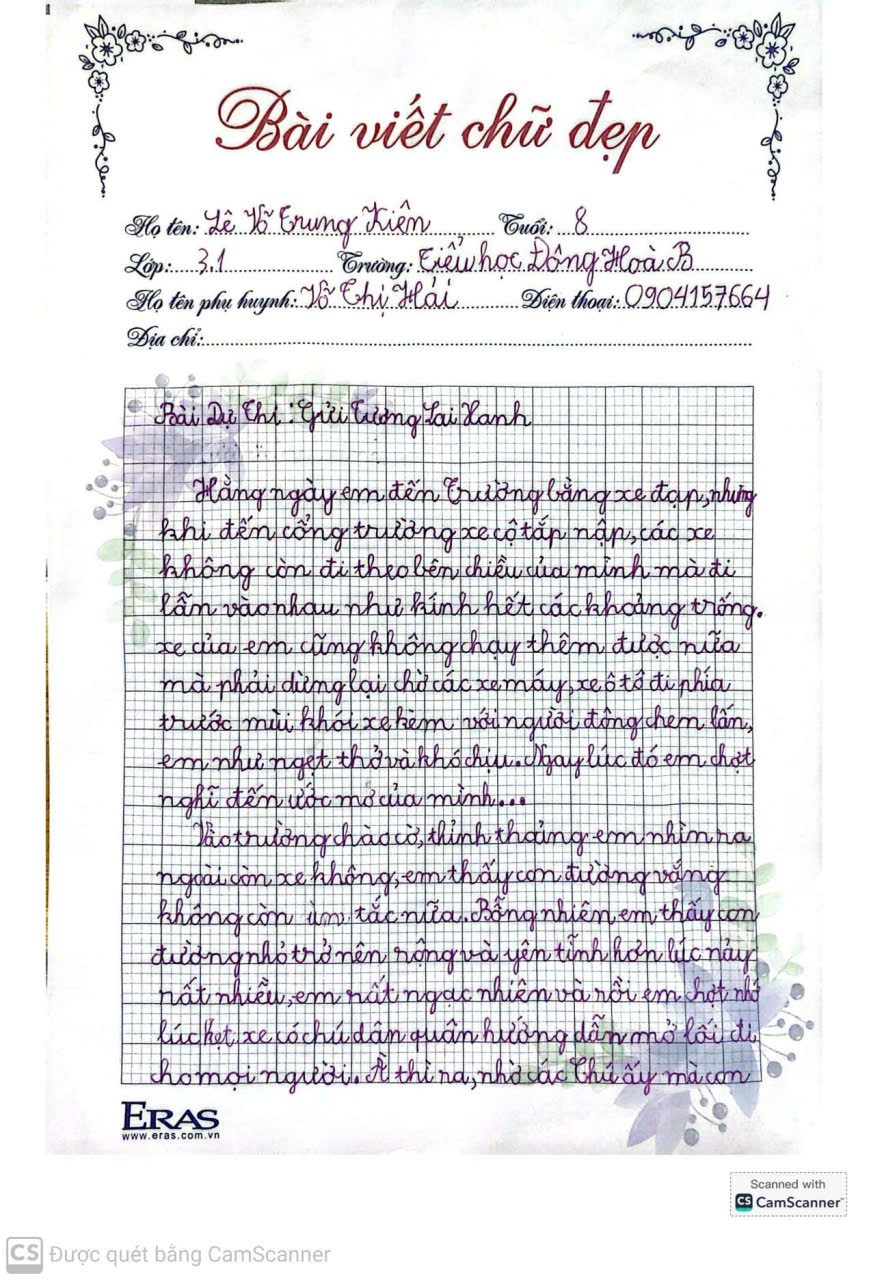 Bài viết chữ đẹp
Họ tên: Lê Võ Trung Kiên Tuổi: 8
Lớp: 3.1 Trường: Tiểu học Đông Hoà B
Họ tên phụ huynh: Võ Thị Hải Điện thoại: 0904157664
Địa chỉ:
Bài Dự Thi: Gửi Tương Lai Xanh
Hằng ngày em đến Trường bằng xe đạp, nhưng
khi đến cổng trường xe cộ tấp nập, các xe
không còn đi theo bên chiều của mình mà đi
lấn vào nhau như kính hết các khoảng trống.
xe của em cũng không chạy thêm được nữa
mà phải dừng lại chờ các xe máy, xe ô tô đi phía
trước mùi khói xe kèm với người đông chen lấn,
em như ngẹt thở và khó chịu. Ngay lúc đó em chợt
nghĩ đến ước mơ của mình...
Vào trường chào cờ, thỉnh thoảng em nhìn ra
ngoài còn xe không, em thấy con đường vắng
không còn ùn tắc nữa. Bỗng nhiên, em thấy con
đường nhỏ trở nên rộng và yên tĩnh hơn lúc nảy
rất nhiều, em rất ngạc nhiên và rồi em chợt nhớ
lúc kẹt xe có chú dân quân hướng dẫn mở lối đi
cho mọi người. À thì ra, nhờ các Chú ấy mà con
ERAS
www.eras.com.vn
Scanned with
CS CamScanner
CS Được quét bằng CamScanner